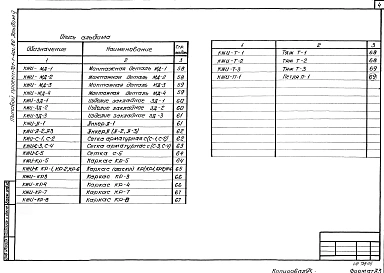 4
Опись альбома
Обозначение Наименование Стр.
1 2 3
КЖИ-МД-1 Монтажная деталь МД-1 58
КЖИ-МД-2 Монтажная деталь МД-2 58
КЖИ-МД-3 Монтажная деталь МД-3 59
КЖИ-МД-4 Монтажная деталь МД-4 59
КЖИ-ЗД-1 Изделие закладное ЗД-1 60
КЖИ-ЗД-2 Изделие закладное ЗД-2 60
КЖИ-ЗД-3 Изделие закладное ЗД-3 61
КЖИ-В-1 61
62
КЖИ-С-1, С-2 Сетка арматурная С (С-1, С-2) 62
КЖИ-С-3, С-4 Сетка арматурная С (С-3, С-4) 63
КЖИ-С-5 Сетка С-5 64
КЖИ-КР-5 Каркас КР-5 64
Каркас плоский 65
КЖИ-КР3 Каркас КР-3 66
КЖИ-КР4 Каркас КР-4 66
КЖИ-КР-7 Каркас КР-7 67
КЖИ-КР-8 Каркас КР-8 67
1 2 3
КЖИ-Т-1 Тяж Т-1 68
КЖИ-Т-2 Тяж Т-2 68
КЖИ-Т-3 Тяж Т-3 69
КЖИ-П-1 Петля П-1 69
Копировал
Формат А3